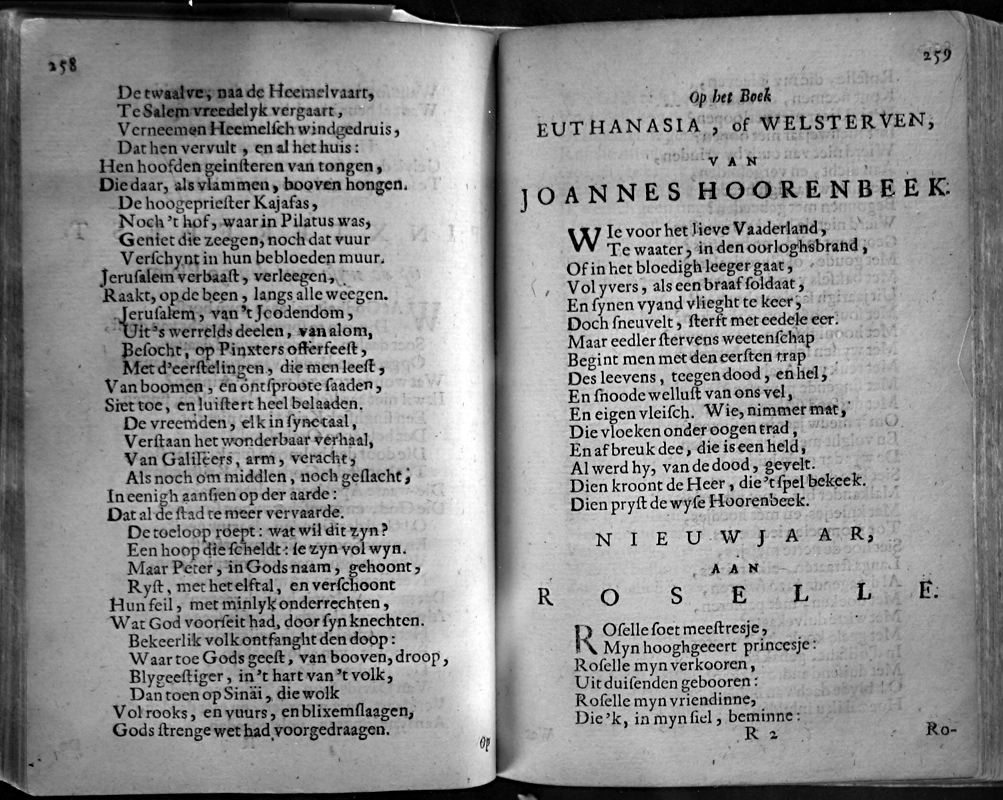 258
De twaalve, naa de Heemelvaart,
Te Salem vreedelyk vergaart,
Verneemen Heemelſch windgedruis,
Dat hen vervult, en al het huis:
Hen hoofden geinſteren van tongen,
Die daar, als vlammen, booven hongen.
De hoogeprieſter Kajafas,
Noch 't hof, waar in Pilatus was,
Geniet die zeegen, noch dat vuur
Verſchynt in hun bebloeden muur.
Jeruſalem verbaaſt, verleegen,
Raakt, op de been, langs alle weegen.
Jeruſalem, van 't Joodendom,
Uit 's werrelds deelen, van alom,
Beſocht, op Pinxters offerfeeſt,
Met d'eerſtelingen, die men leeſt,
Van boomen, en ontſproote ſaaden,
Siet toe, en luiſtert heel belaaden.
De vreemden, elk in ſyne taal,
Verſtaan het wonderbaar verhaal,
Van Galileers, arm, veracht,
Als noch om middlen, noch geſlacht,
In eenigh aanſien op der aarde:
Dat al de ſtad te meer vervaarde.
De toeloop roept: wat wil dit zyn?
Een hoop die ſcheldt: ſe zyn vol wyn.
Maar Peter, in Gods naam, gehoont,
Ryſt, met het elftal, en verſchoont
Hun feil, met minlyk onderrechten,
Wat God voorſeit had, door ſyn knechten.
Bekeerlik volk ontfanght den doop:
Waar toe Gods geeſt, van booven, droop,
Blygeeſtiger, in 't hart van 't volk,
Dan toen op Sinäi, die wolk
Vol rooks, en vuurs, en blixemſlaagen,
Gods ſtrenge wet had voorgedraagen.
Op
259
Op het Boek
EUTHANASIA, of WELSTERVEN,
VAN
JOANNES HOORENBEEK.
WIe voor het lieve Vaaderland,
Te waater, in den oorloghsbrand,
Of in het bloedigh leeger gaat,
Vol yvers, als een braaf ſoldaat,
En ſynen vyand vlieght te keer,
Doch ſneuvelt, ſterft met eedele eer.
Maar eedler ſtervens weetenſchap
Begint men met den eerſten trap
Des leevens, teegen dood, en hel,
En ſnoode welluſt van ons vel,
En eigen vleiſch. Wie, nimmer mat,
Die vloeken onder oogen trad,
En afbreuk dee, die is een held,
Al werd hy, van de dood, gevelt.
Dien kroont de Heer, die 't ſpel bekeek.
Dien pryſt de wyſe Hoorenbeek.
NIEUWJAAR,
AAN
ROSELLE.
ROſelle ſoet meeſtresje,
Myn hooghgeeert princesje:
Roſelle myn verkooren,
Uit duiſenden gebooren:
Roſelle myn vriendinne,
Die 'k, in myn ſiel, beminne:
R 2
Ro-